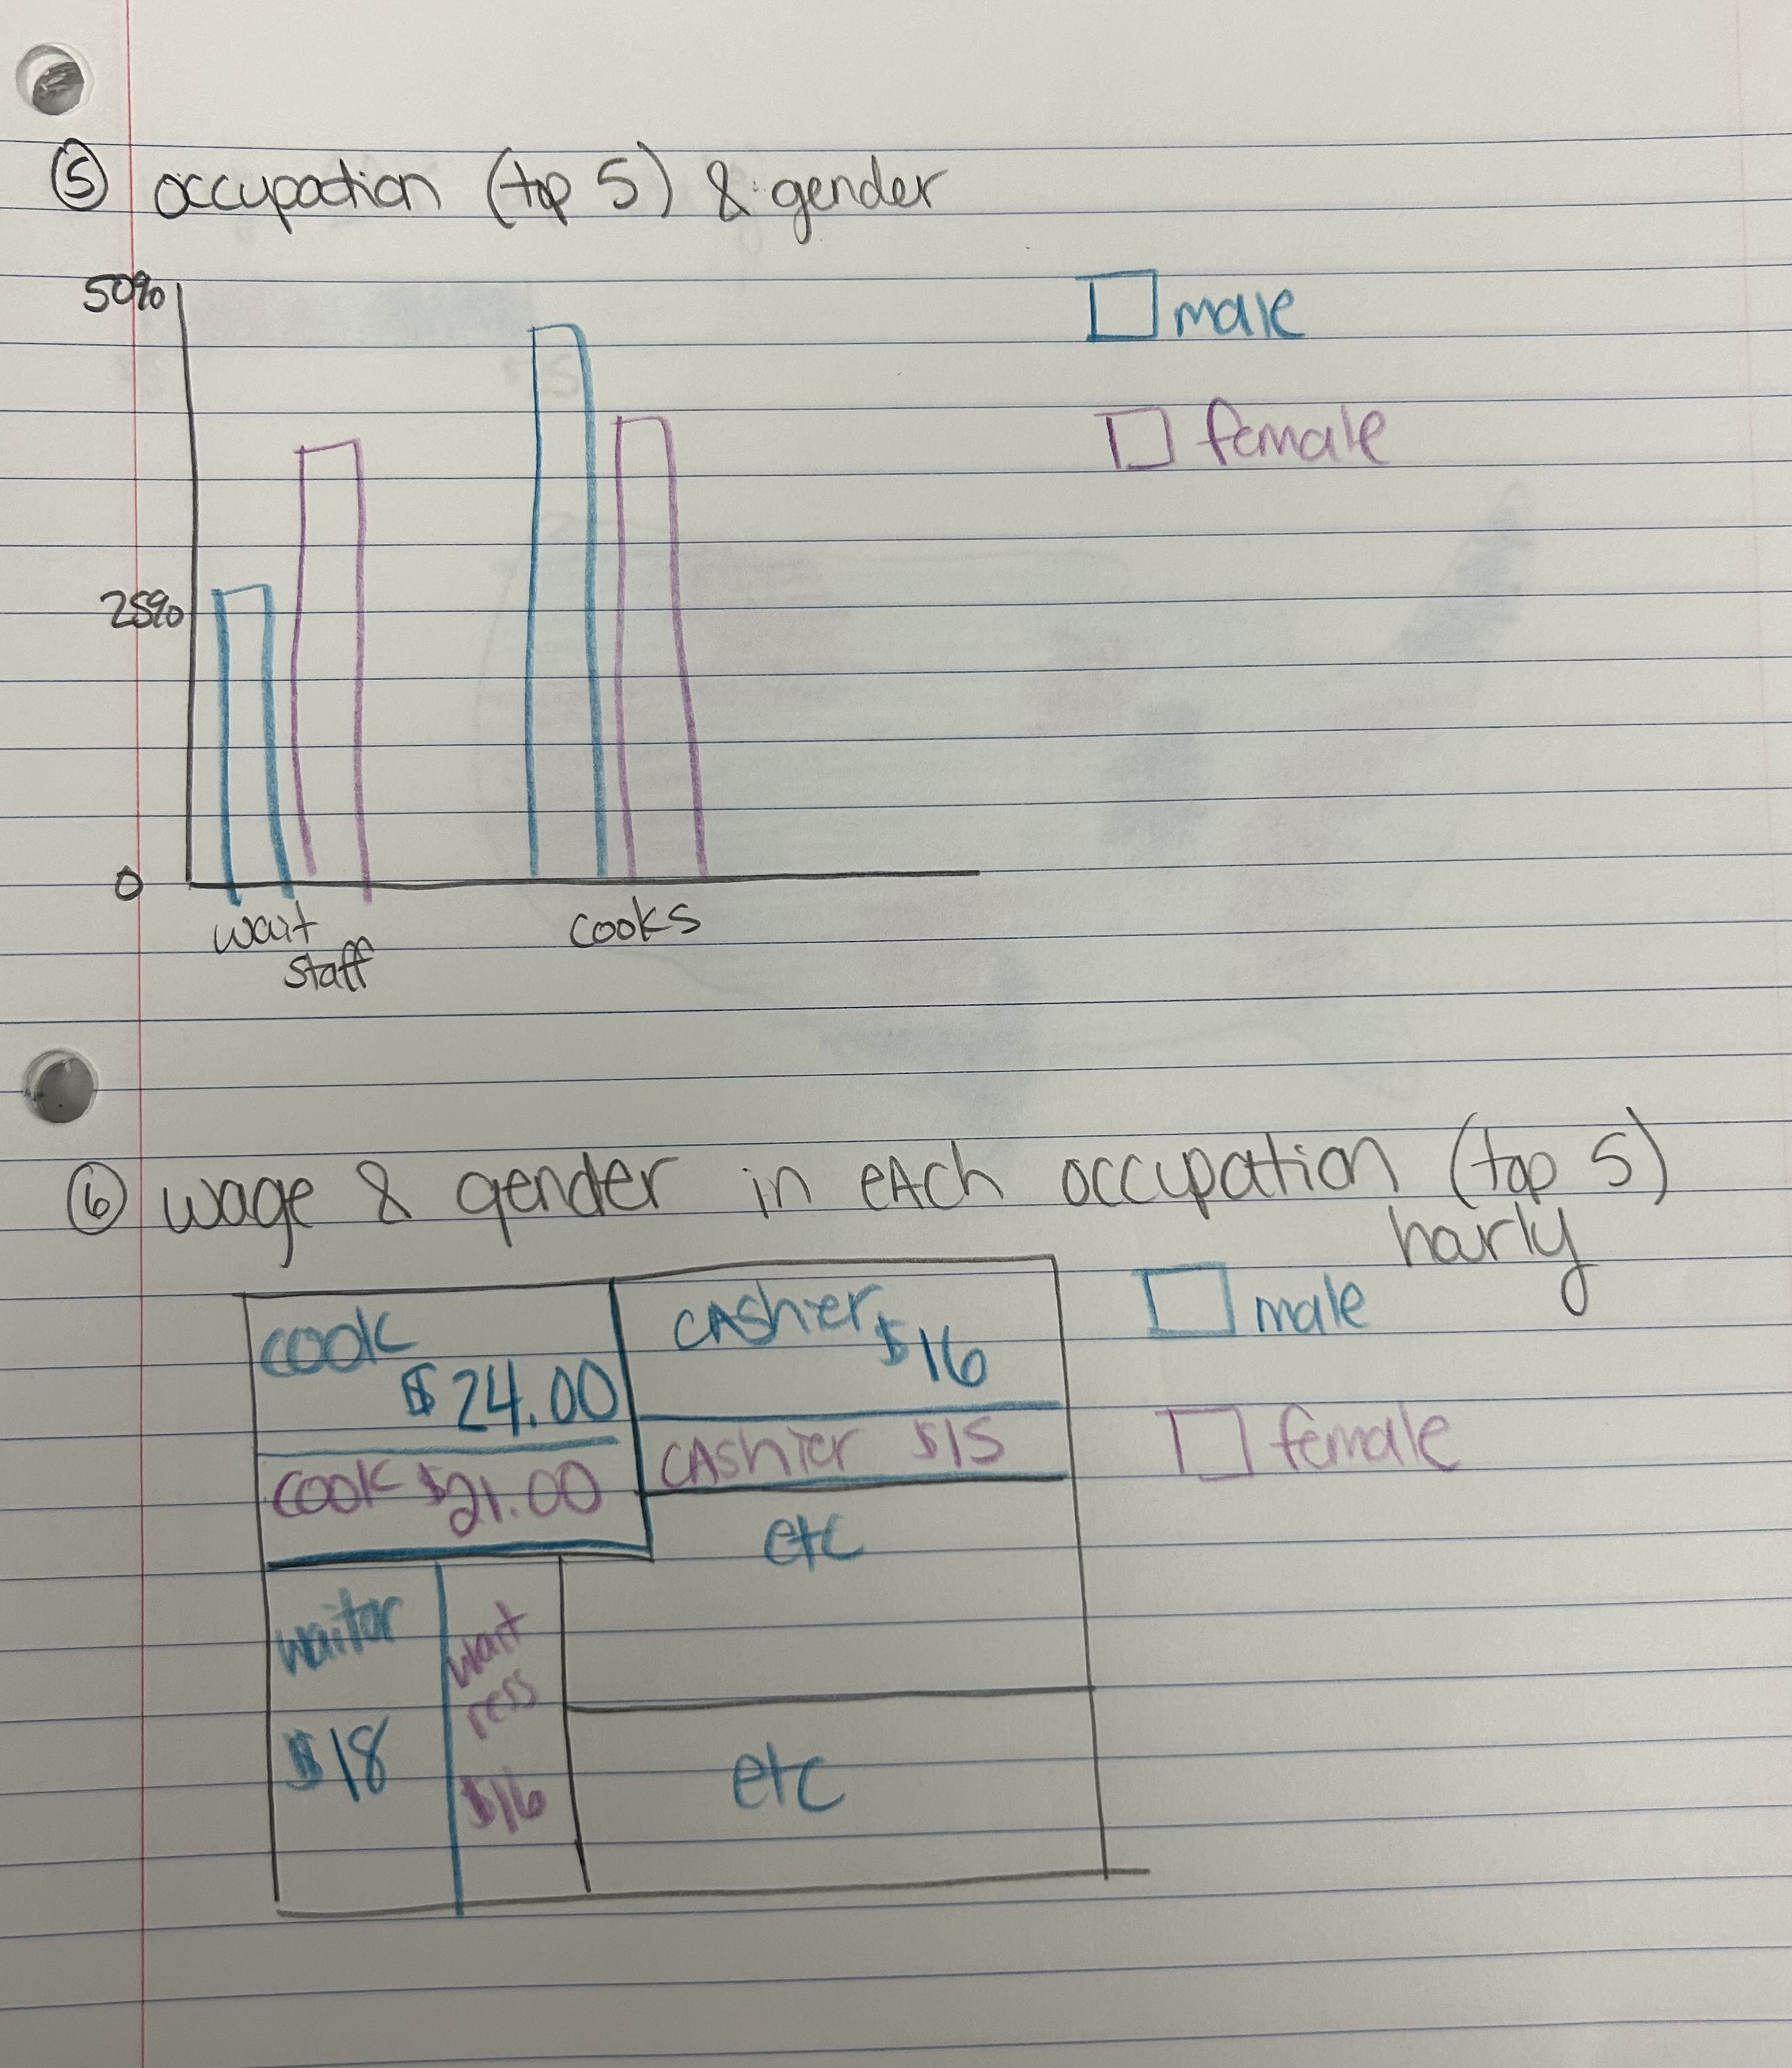 ⑤ occupation (top 5) & gender
50%
25%
0
wait
staff
cooks
male
female
⑥ wage & gender in eAch occupation (top 5)
harly
cook
$24.00
cook $21.00
cAshier
$16
cAshier $15
etc
waitor
$18
wait
ress
$16
etc
male
female